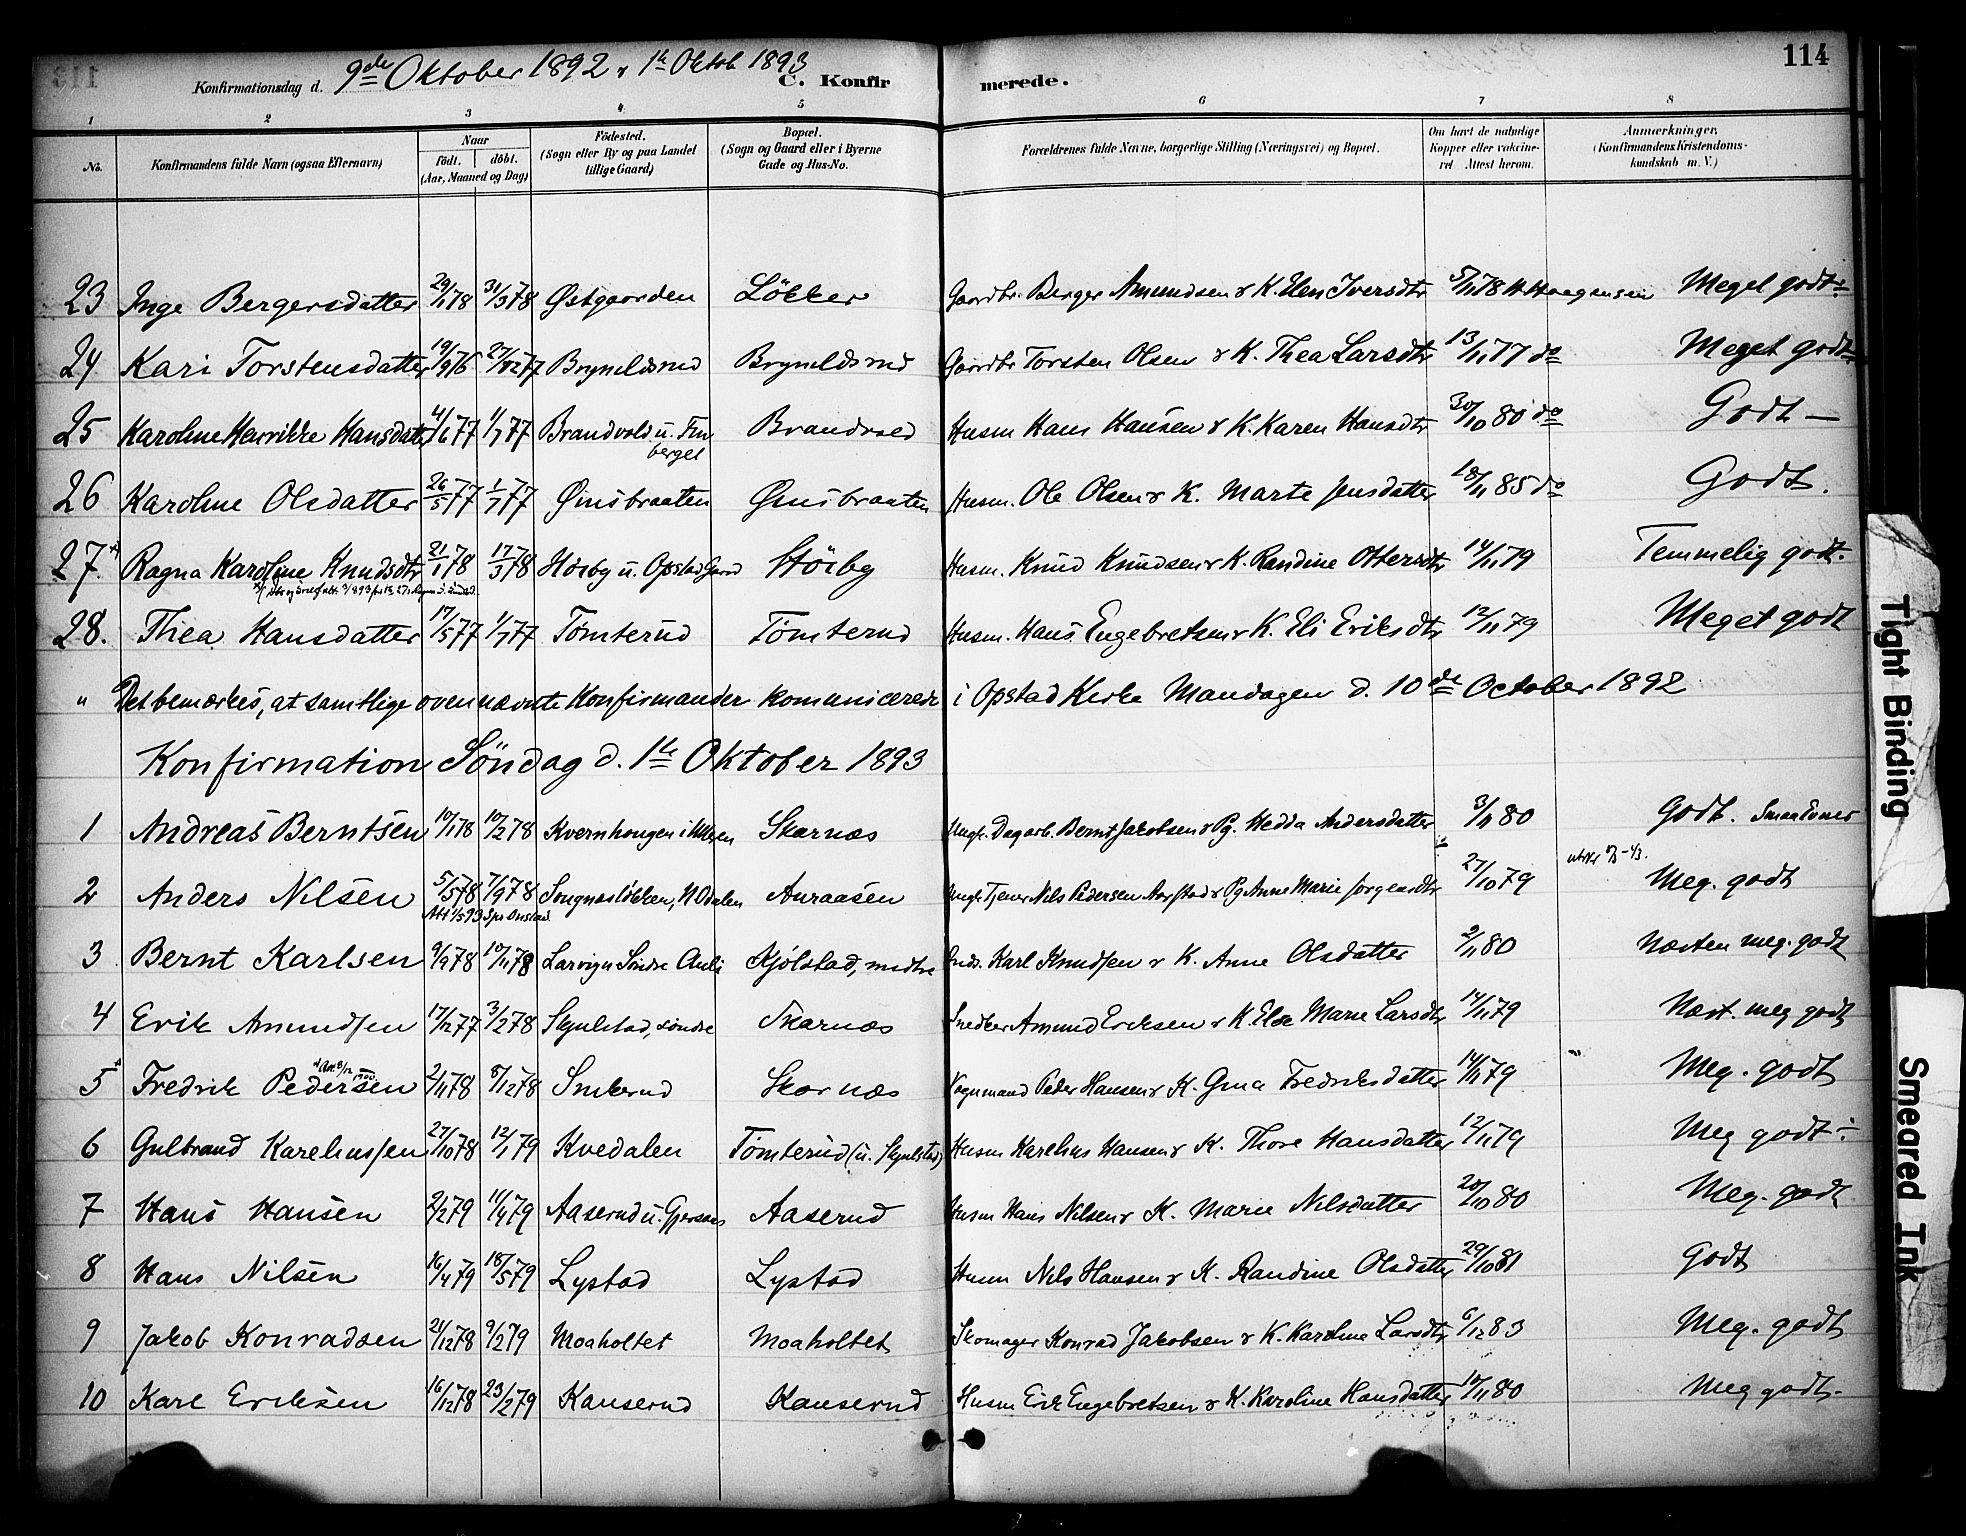 114
Konfirmationsdag d. 9de Oktober 1892 & 1ste Oktob 1893 C. Konfirmerede.
1 2 3 4 5 6 7 8
No. Konfirmandens fulde Navn (ogsaa Efternavn) Naar født. døbt. (Aar, Maaned og Dag) Fødested. (Sogn eller By og paa Landet tillige Gaard) Bopæl. (Sogn og Gaard eller i Byerne Gade og Hus-No. Forældrenes fulde Navne, borgerlige Stilling (Næringsvei) og Bopæl. Om havt de naturlige Kopper eller vaccineret. Attest herom. Anmærkninger, (Konfirmandens Kristendomskundskab m. V.)
23 Inge Bergersdatter 29/1 78 31/3 78 Østgaarden Løkker Gaardbr. Berger Amundsen & K. Elen Iversdtr 5/11 78 H Haagensen Meget godt
24 Kari Torstensdatter 19/9 76 Bryneldsrud Bryneldsrud Gaardbr Torsten Olsen & K. Thea Larsdtr 13/11 77 do Meget godt
25 Karoline Henrikke Hansdatter 4/6 77 1/7 77 Brandvold u. Finberget Brandvold Husm Hans Hansen & K. Karen Hansdtr 30/10 80 do Godt
26 Karoline Olsdatter 26/5 77 1/7 77 Ømsbraaten Ømsbraaten Husm. Ole Olsen & K. Marte Jensdatter 18/11 85 do Godt.
27. Ragna Karoline Knudsdtr 21/1 78 17/3 78 Hørby u. Opstad Gaard Størby Husm. Knud Knudsen & K. Randine Ottersdtr 14/11 79 Temmelig godt.
28. Thea Hansdatter 17/5 77 1/7 77 Tømterud Tømterud Husm. Hans Engebretsen & K. Eli Eriksdtr 12/11 79 Meget godt
" Det bemærkes, at samtlige ovennævnte Konfirmander komunicerede i Opstad Kirke Mandagen d. 10de October 1892
Konfirmation Søndag d. 1ste Oktober 1893
1 Andreas Berntsen 10/1 78 10/2 78 Skarnæs Ungk. Dagarb. Bernt Jakobsen & Pg. Hedda Andersdatter 3/11 80 Godt.
2 Anders Nilsen 5/5 78 7/9 78 Songnesløkken, N Odalen Auraasen Ungk. Tjener Nils Pedersen Aarstad & Pg Anne Marie Jørgensdtr 27/10 79 Meg. godt
3 Bernt Karlsen 9/9 78 10/11 78 Kjølstad, nedtre Inds. Karl Knudsen & K. Anne Olsdatter 2/11 80 Næsten meg. godt
4 Erik Amundsen 17/12 77 3/2 78 Skyrlstad, søndre Skarnæs Snedker Amund Eriksen & K. Else Marie Larsdtr 14/11 79 Næst. meg godt
5 Fredrik Pedersen 2/11 78 8/12 78 Smlerud Skarnæs Vognmand Peder Hansen & K. Gina Fredriksdatter 14/11 79 Meg. godt
6 Gulbrand Kareliussen 27/10 78 12/1 79 Kvedalen Tømterud (u. Skyrlstad) Husm Karelius Hansen & K. Thore Hansdatter 12/11 79 Meg godt
7 Hans Hansen 2/2 79 11/4 79 Aaserud u. Gjersøes Aaserud Husm Hans Nilsen & K. Marie Nilsdatter 20/10 80 Meg. godt
8 Hans Nilsen 16/4 79 18/5 79 Lystad Lystad Husm Nils Hansen & K. Randine Olsdatter 29/10 81 Godt
9 Jakob Konradsen 21/12 78 9/2 79 Moaholtet Moaholtet Skomager Konrad Jakobsen & K. Karoline Larsdtr 6/12 83 Meg. godt
10 Karl Eriksen 16/12 78 23/2 79 Kanserud Kanserud Husm Erik Engebretsen & K. Karoline Hansdatter 10/11 80 Meg godt.
Tight Binding
Smeared Ink